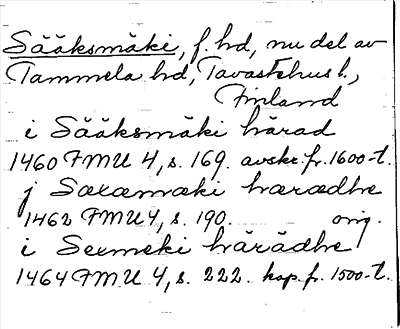 Sääksmäki, f. hd, nu del av
Tammela hd, Tavastehus l.,
Finland
i Sääksmäki härad
1460 FMU 4, s. 169. avskr. fr. 1600-t.
j Saxamæki hæradhe
1462 FMU 4, s. 190. orig.
i Sexmeki härädhe
1464 FMU 4, s. 222. kop. fr. 1500-t.